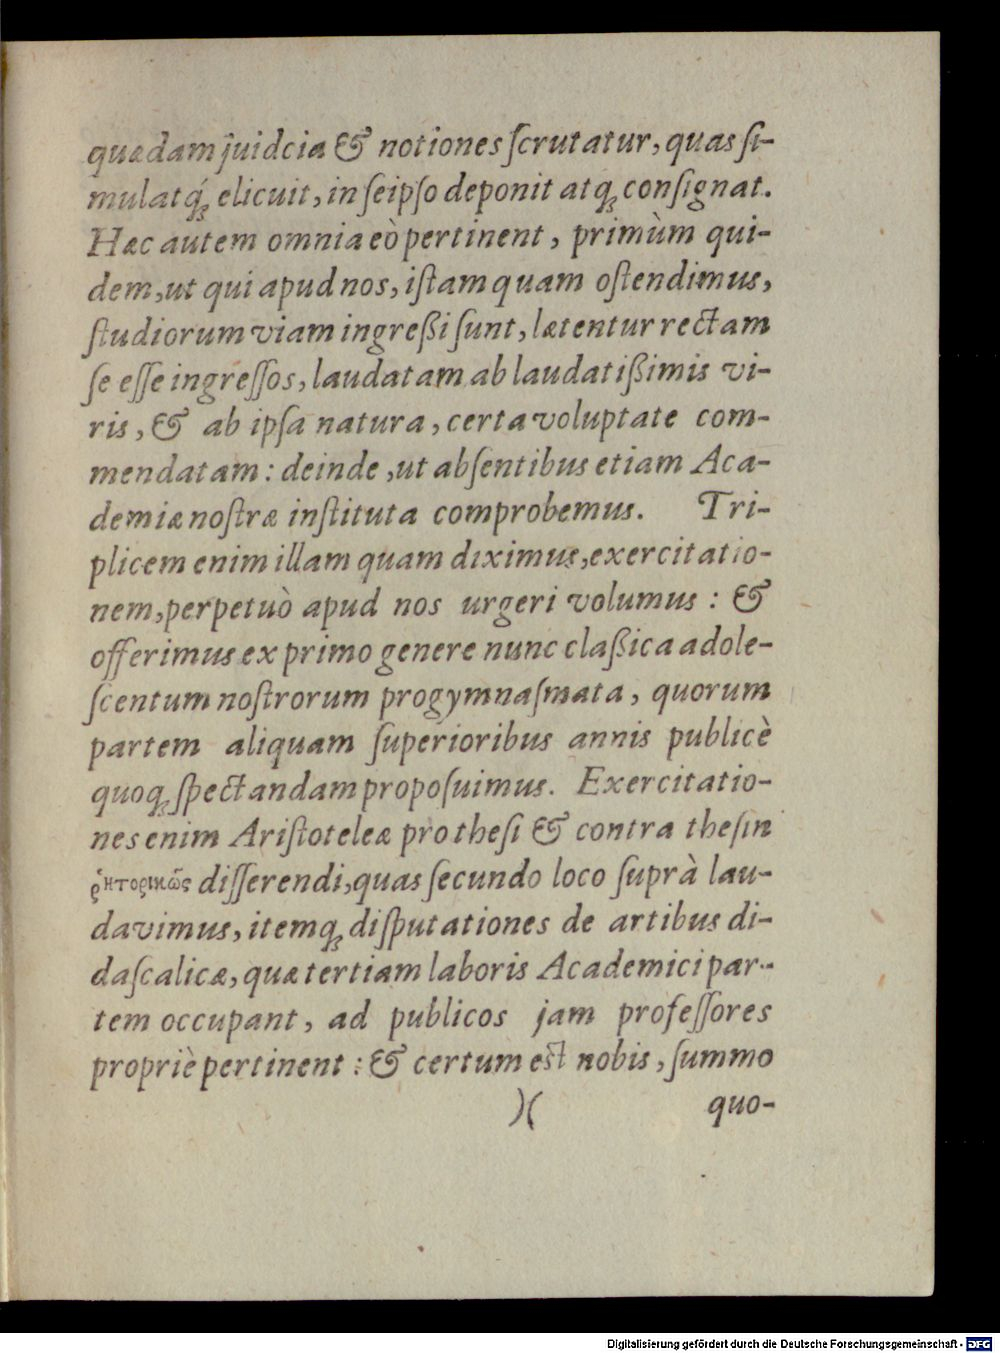 quædam juidcia & notiones ſcrutatur, quas ſi-
mulatq́ꝫ elicuit, in ſeipſo deponit atqꝫ conſignat.
Hæc autem omnia eò pertinent, primùm qui-
dem, ut qui apud nos, iſtam quam oſtendimus,
ſtudiorum viam ingreßi ſunt, lætentur rectam
ſe eſſe ingreſſos, laudatam ab laudatißimis vi-
ris, & ab ipſa natura, certa voluptate com-
mendatam: deinde, ut abſentibus etiam Aca-
demiæ noſtræ inſtituta comprobemus. Tri-
plicem enim illam quam diximus, exercitatio-
nem, perpetuò apud nos urgeri volumus: &
offerimus ex primo genere nunc claßica adole-
ſcentum noſtrorum progymnaſmata, quorum
partem aliquam ſuperioribus annis publicè
quoqꝫ ſpectandam propoſuimus. Exercitatio-
nes enim Ariſtoteleæ pro theſi & contra theſin
ῥητορικῶς diſſerendi, quas ſecundo loco ſuprà lau-
davimus, itemqꝫ diſputationes de artibus di-
daſcalicæ, quæ tertiam laboris Academici par-
tem occupant, ad publicos jam profeſſores
propriè pertinent: & certum eſt nobis, ſummo
)( quo-
Digitalisierung gefördert durch die Deutsche Forschungsgemeinschaft - DFG